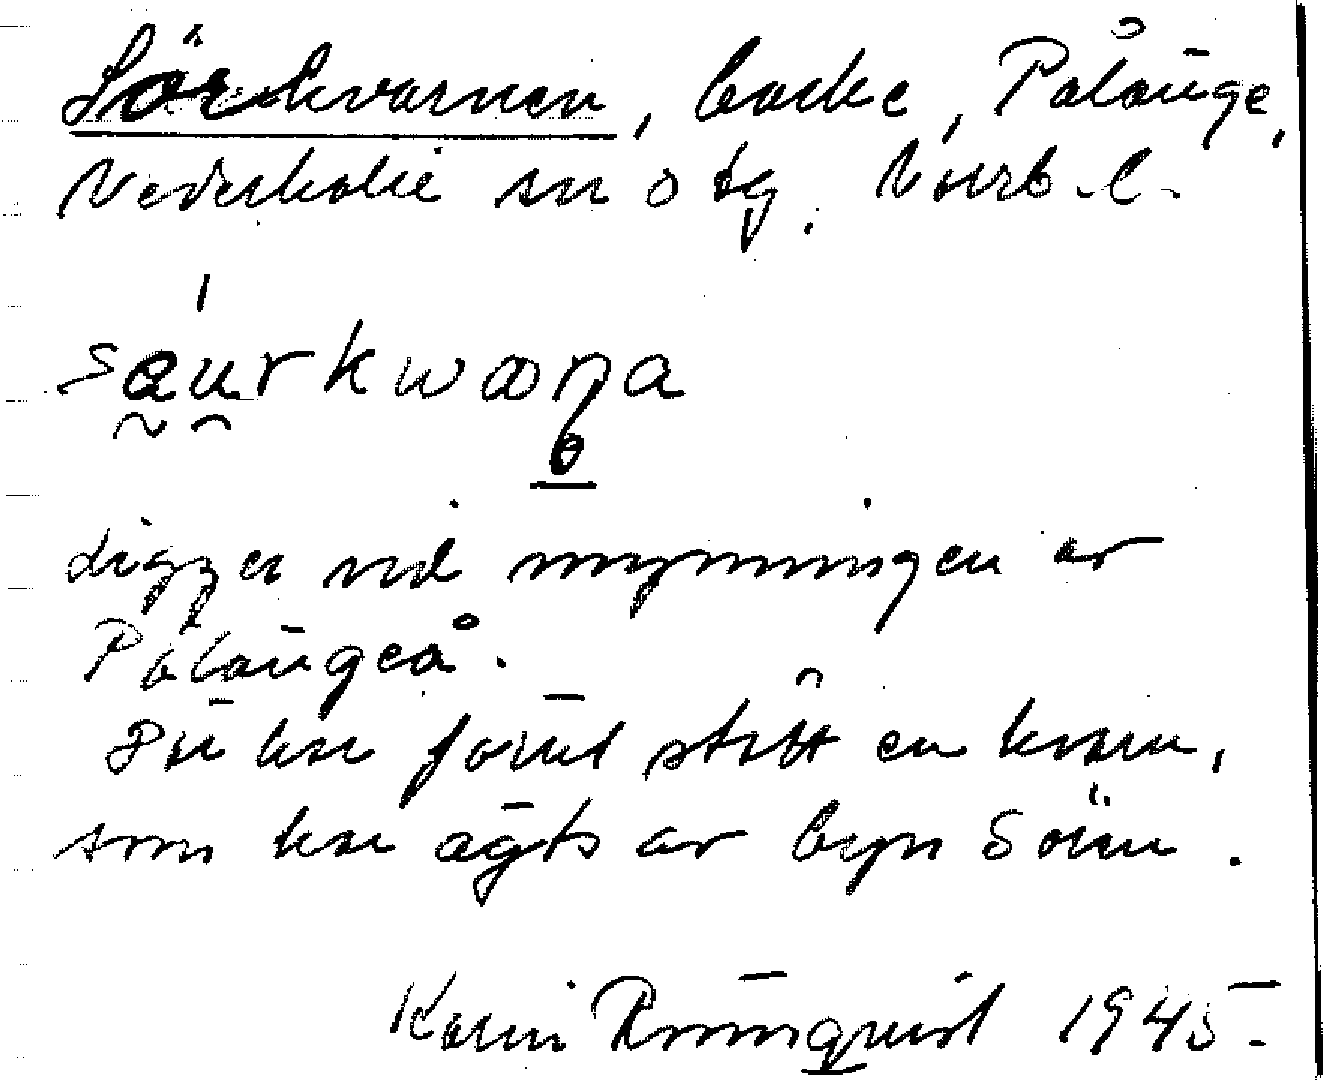 Sörkvarnen, backe, Pålänge,
Nederkalix sn o tg. Norrb. l.
saurkwæṇa
Ligger vid mynningen av
Pålängeå.
Där har förut stått en kvarn,
som har ägts av byn Sören.
Karin Rönnqvist 1945.